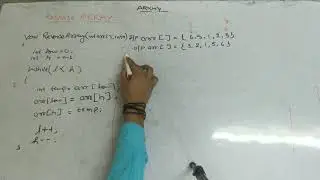 ARRAY
REVERSE ARRAY
Void ReverseArray(int arr[], int n) I/P arr[] = { 6, 5, 1, 2, 3};
{ O/P arr[] = { 3, 2, 1, 5, 6}
int low=0;
int h = n-1
while(l < h)
{
int temp = arr[low];
arr[low] = arr[h];
arr[h] = temp;
l++;
h--;